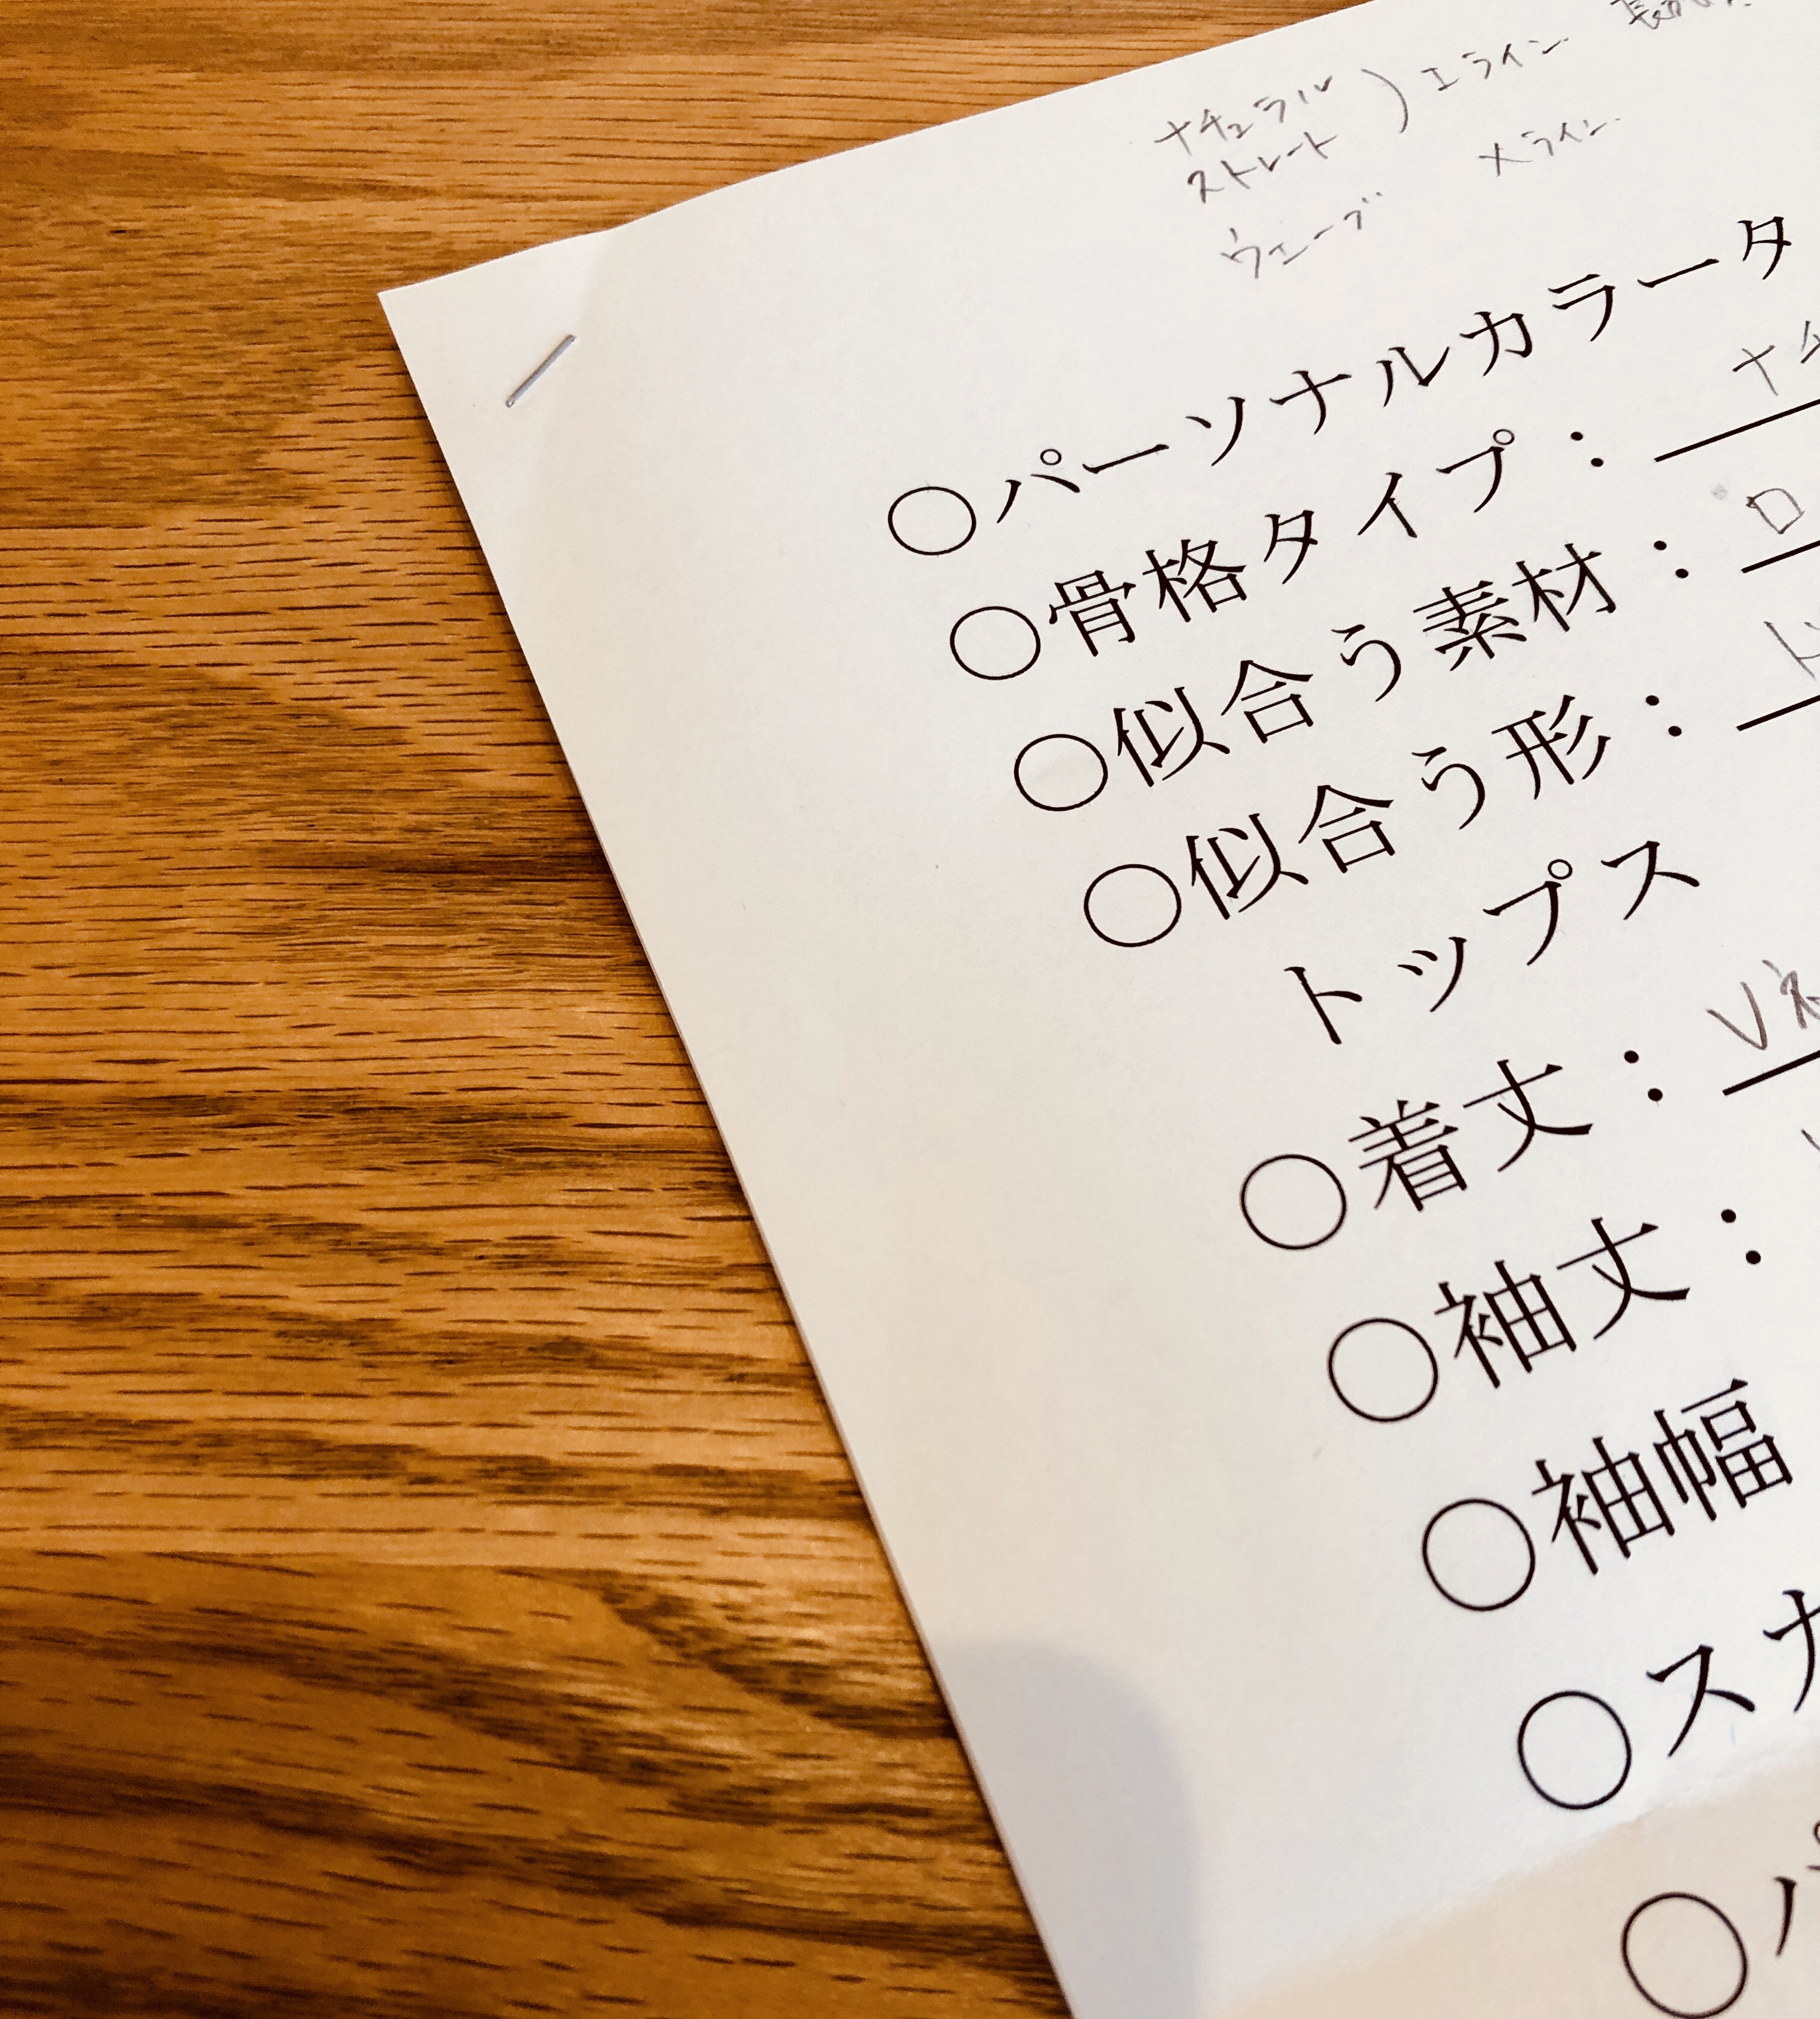 ナチュラル ) Iライン
ストレート
ウェーブ Xライン
○パーソナルカラータ
○骨格タイプ：ナチ
○似合う素材：ロ
○似合う形：
トップス
○着丈：Vネ
○袖丈：
○袖幅
○スカ
○パ